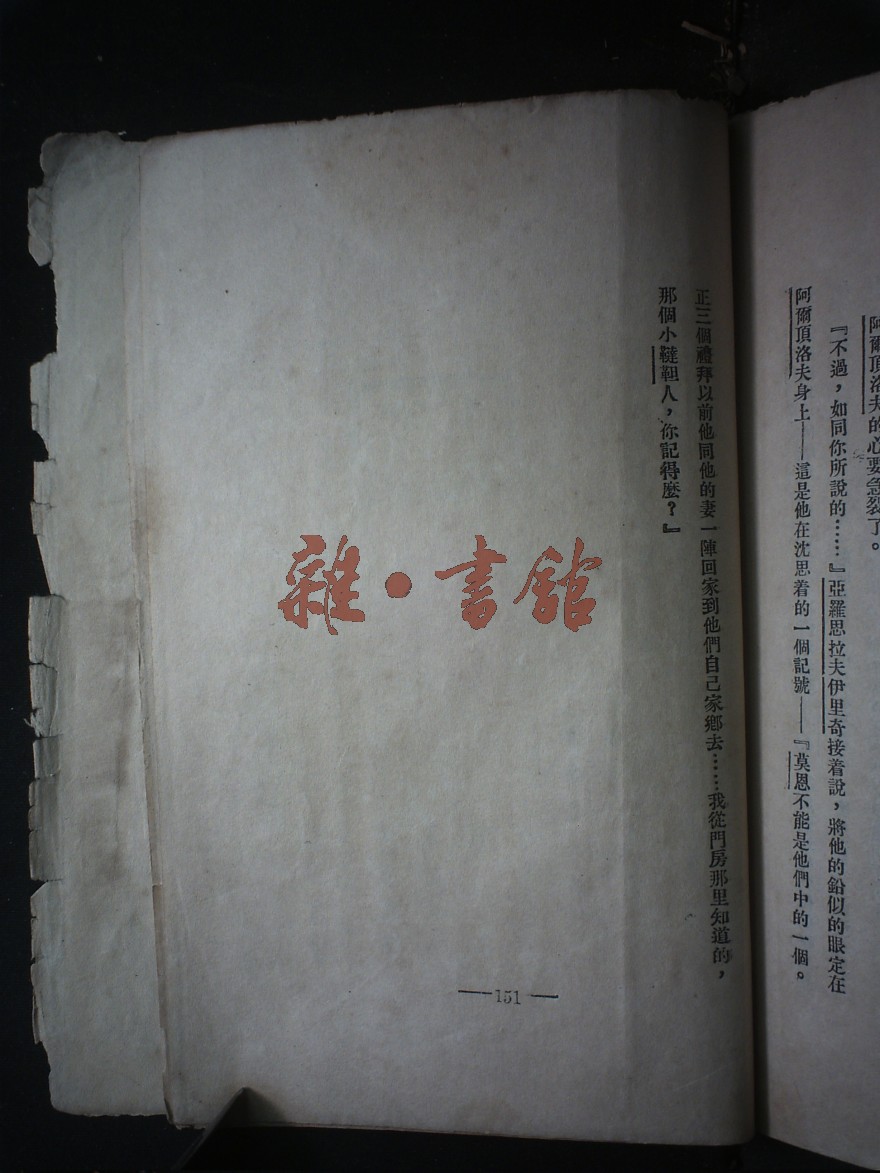 阿爾頂洛夫的心要急裂了。
『不過，如同你所說的……』亞羅思拉夫伊里奇接着說，將他的鉛似的眼定在
阿爾頂洛夫身上——這是他在沈思着的一個記號——『莫恩不能是他們中的一個。
正三個禮拜以前他同他的妻一陣回家到他們自己家鄉去……我從門房那里知道的，
那個小韃靼人，你記得麼？』
—151—
雜·書館